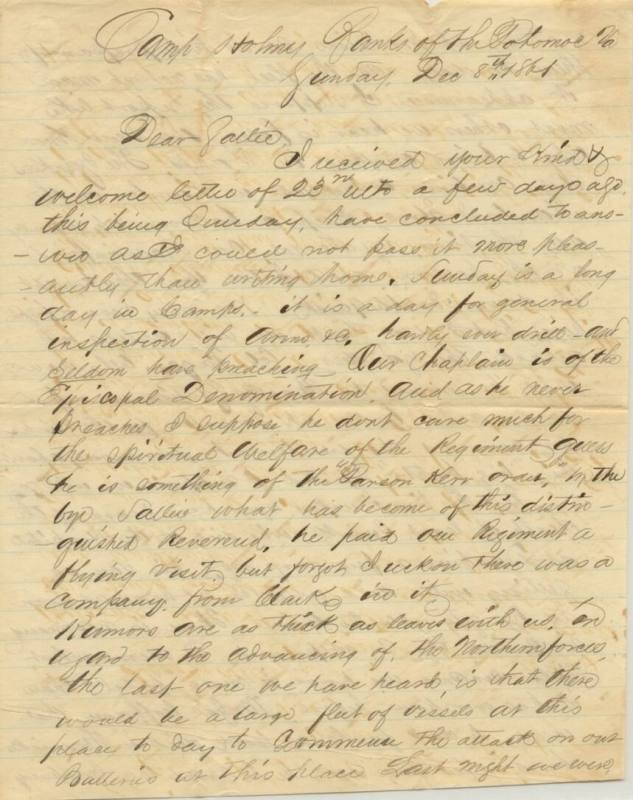 Camp Holmes Banks of the Potomac Va
Sunday. Dec 8th 1861
Dear Sallie
I received your kind &
welcome letter of 23rd ulto a few days ago.
this being Sunday, have concluded to ans-
-wer as I could not pass it more pleas-
-antly than writing home. Sunday is a long
day in Camps. - it is a day for general
inspection of Arms &c. hardly ever drill - and
seldom have preaching - Our Chaplain is of the
Episcopal Denomination. And as he never
Preaches I suppose he dont care much for
the spiritual Welfare of the Regiment, guess
he is something of the "Parson Kerr order," By the
bye Sallie what has become of this distin-
-guished Reverend, he paid our Regiment a
flying visit, but forgot I reckon there was a
Company from Clark in it,
Rumors are as thick as leaves with us. in
regard to the advancing of the Northern forces,
the last one we have heard, is that there
would be a large fleet of vessels at this
place to day to Commence the attack on our
Batteries at this place Last night we were